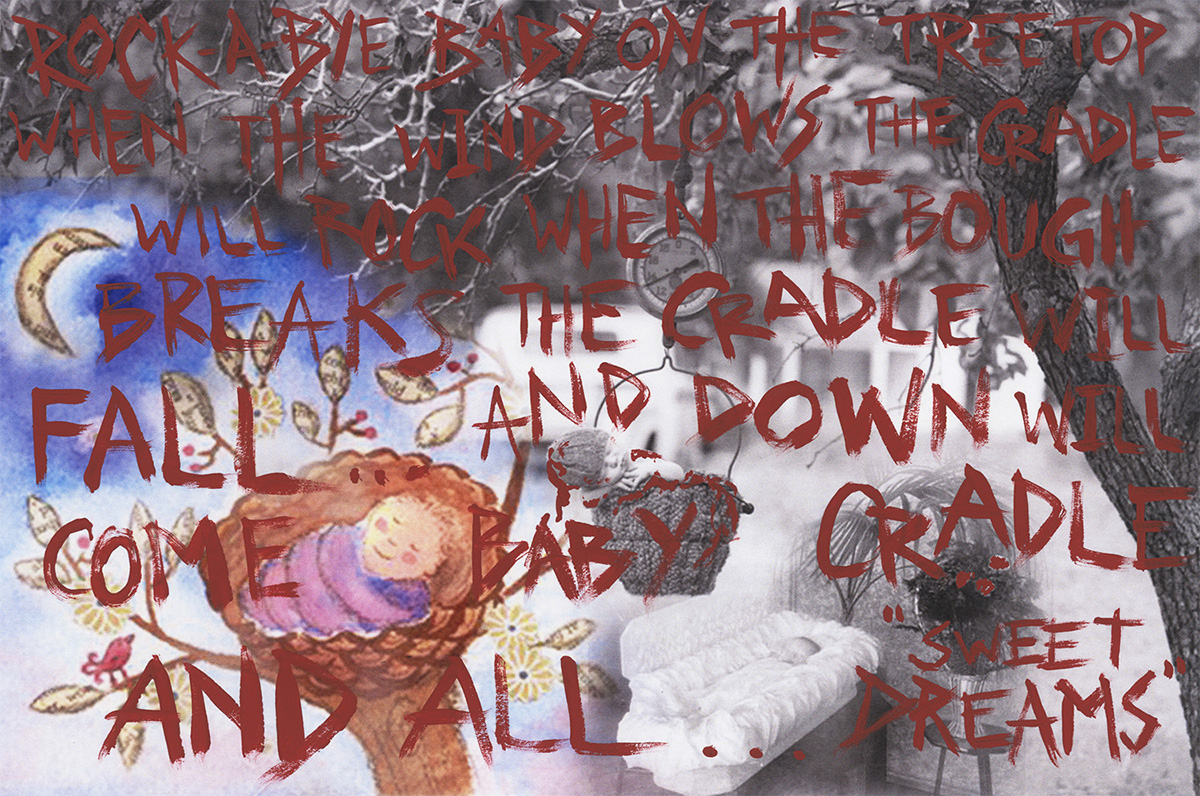 ROCK-A-BYE BABY ON THE TREETOP
WHEN THE WIND BLOWS THE CRADLE
WILL ROCK WHEN THE BOUGH
BREAKS THE CRADLE WILL
FALL... AND DOWN WILL
COME BABY, CRADLE...
AND ALL... "SWEET
DREAMS"...